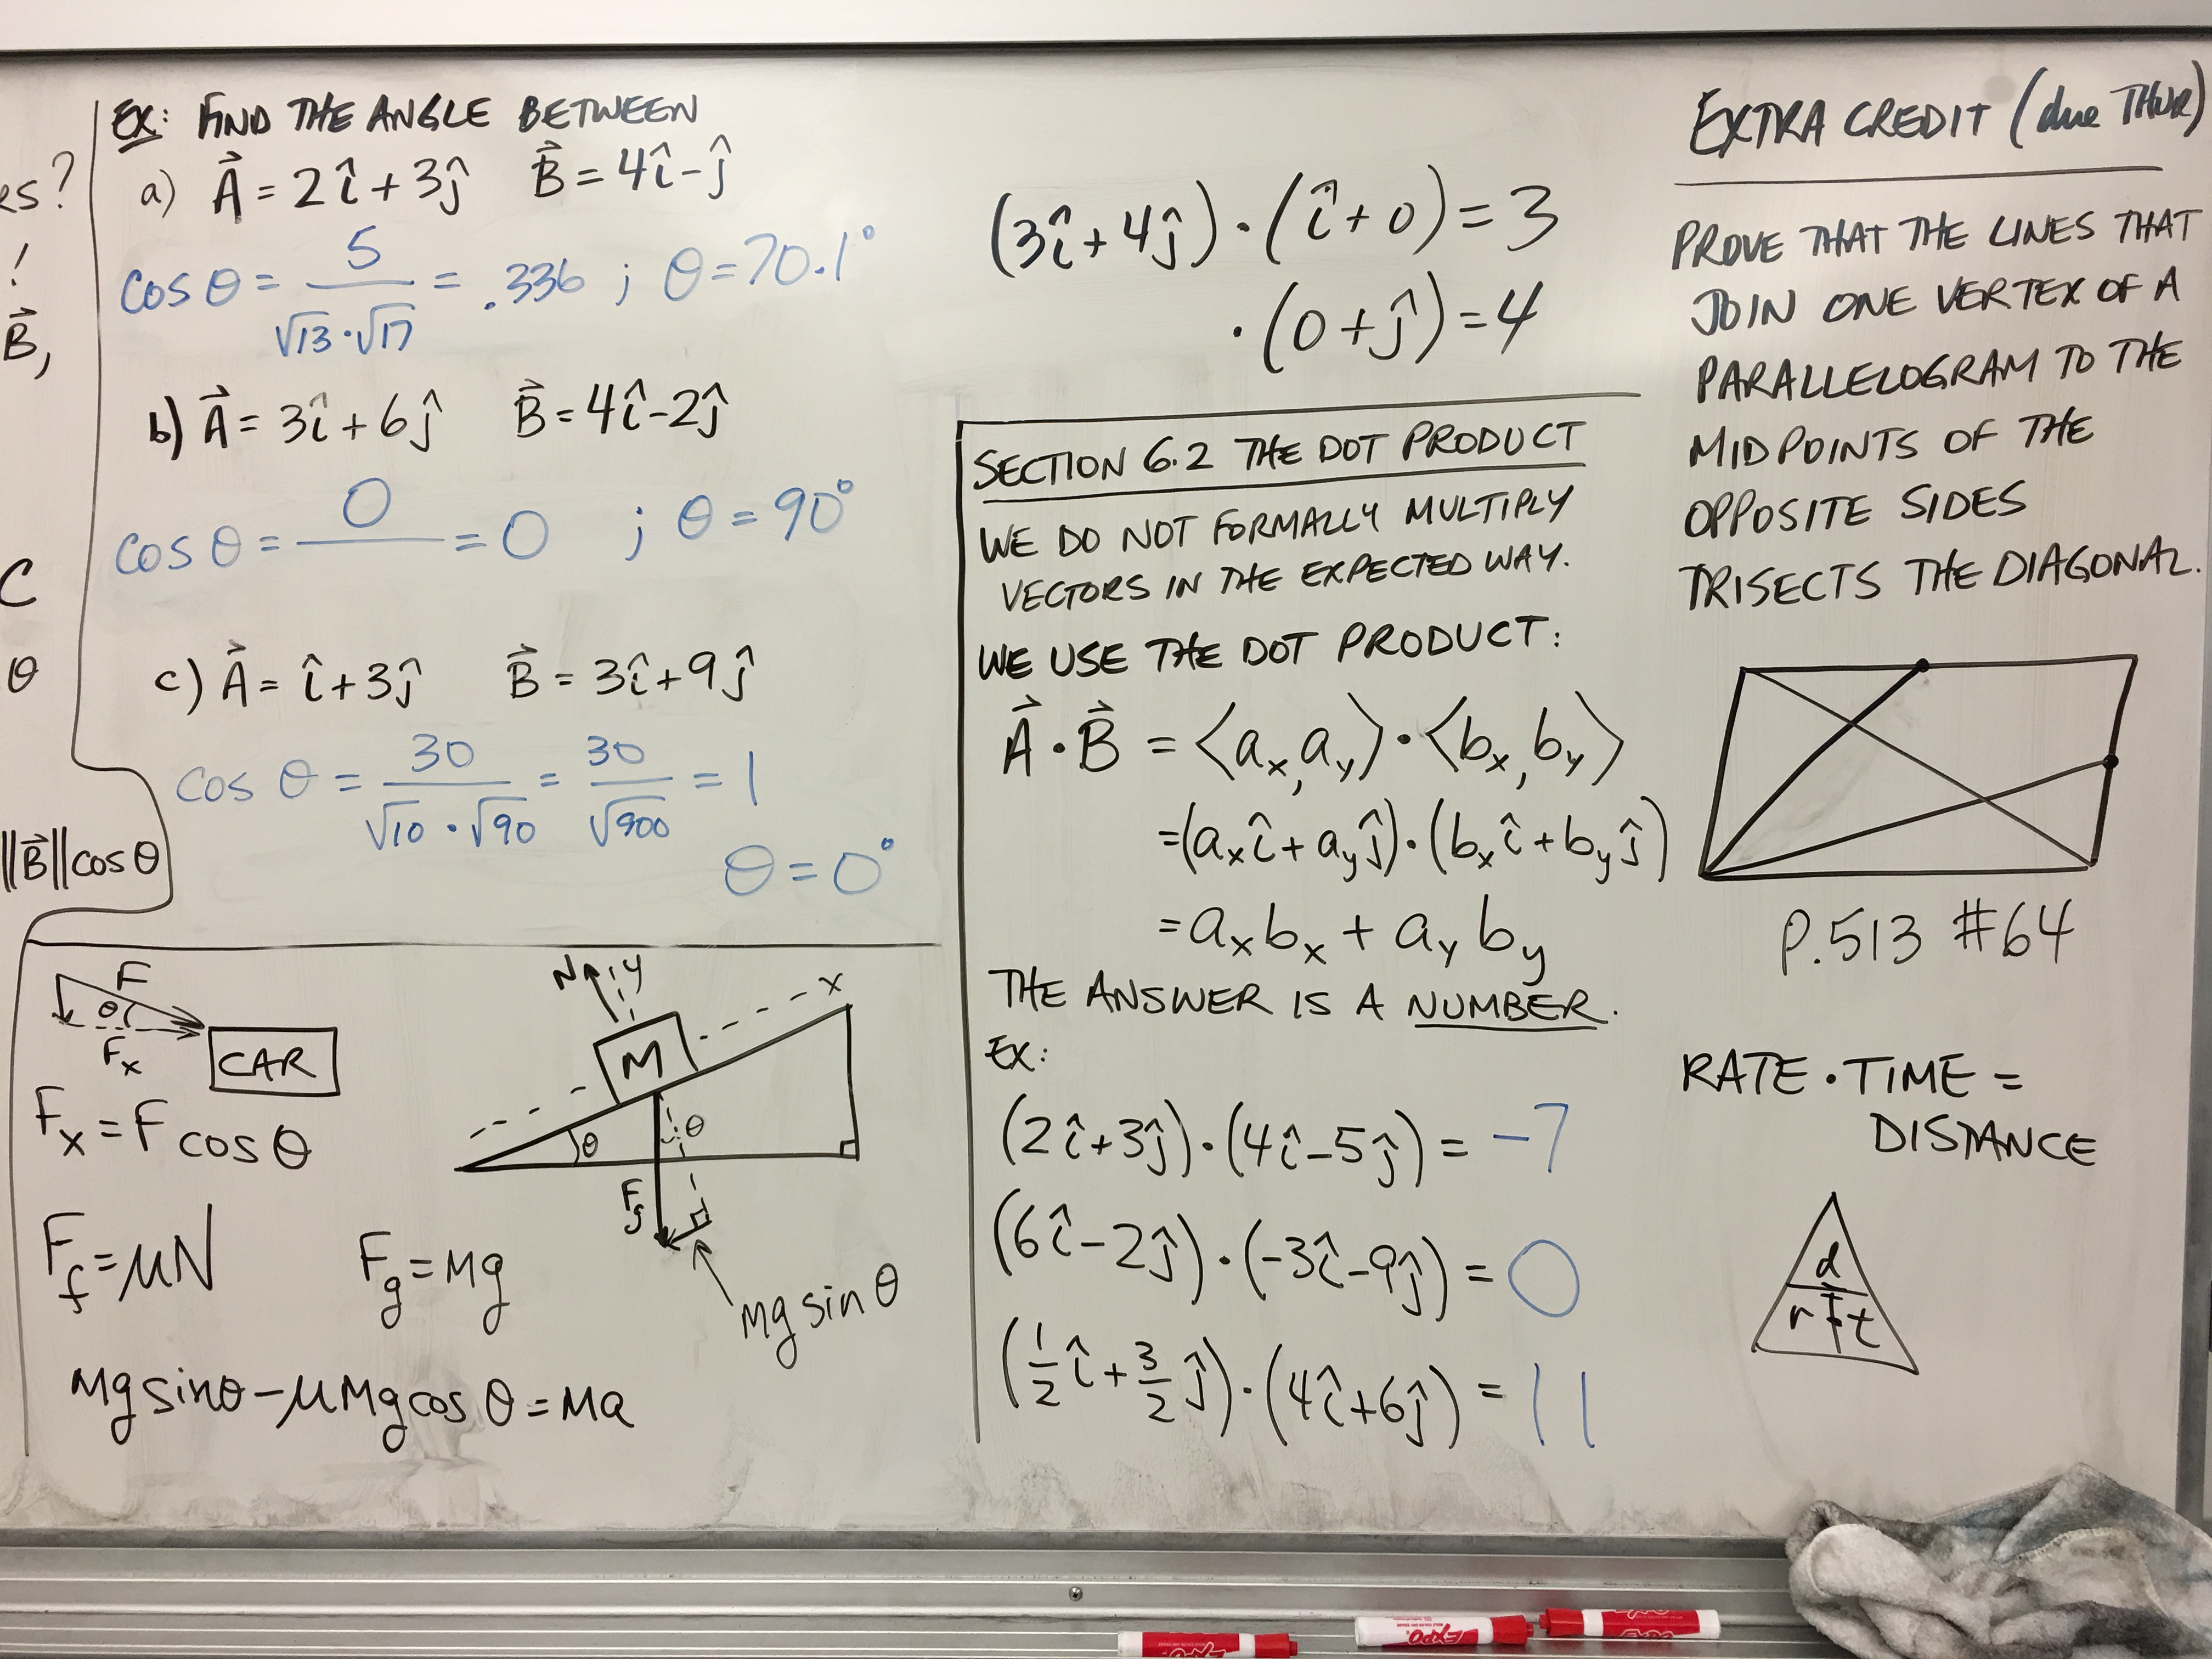 es?
!
B⃗,
C
θ
‖B⃗‖cosθ
EX: FIND THE ANGLE BETWEEN
a) A⃗ = 2î + 3ĵ B⃗ = 4î - ĵ
cos θ = 5/(√13 · √17) = .336 ; θ = 70.1°
b) A⃗ = 3î + 6ĵ B⃗ = 4î - 2ĵ
cos θ = 0/ = 0 ; θ = 90°
c) A⃗ = î + 3ĵ B⃗ = 3î + 9ĵ
cos θ = 30/(√10 · √90) = 30/√900 = 1
θ = 0°
F
θ
Fₓ
CAR
Fₓ = F cos θ
N y
x
M
θ
θ
F_g
mg sin θ
F_f = μN
F_g = Mg
Mg sinθ - μMg cos θ = Ma
(3î + 4ĵ) · (î + 0) = 3
· (0 + ĵ) = 4
SECTION 6.2 THE DOT PRODUCT
WE DO NOT FORMALLY MULTIPLY
VECTORS IN THE EXPECTED WAY.
WE USE THE DOT PRODUCT:
A⃗ · B⃗ = ⟨aₓ, a_y⟩ · ⟨bₓ, b_y⟩
= (aₓî + a_yĵ) · (bₓî + b_yĵ)
= aₓbₓ + a_y b_y
THE ANSWER IS A NUMBER.
EX:
(2î + 3ĵ) · (4î - 5ĵ) = -7
(6î - 2ĵ) · (-3î - 9ĵ) = 0
(1/2 î + 3/2 ĵ) · (4î + 6ĵ) = 11
EXTRA CREDIT (due THUR)
PROVE THAT THE LINES THAT
JOIN ONE VERTEX OF A
PARALLELOGRAM TO THE
MIDPOINTS OF THE
OPPOSITE SIDES
TRISECTS THE DIAGONAL.
P.513 #64
RATE · TIME =
DISTANCE
d
r t
EXPO
EXPO
EXPO